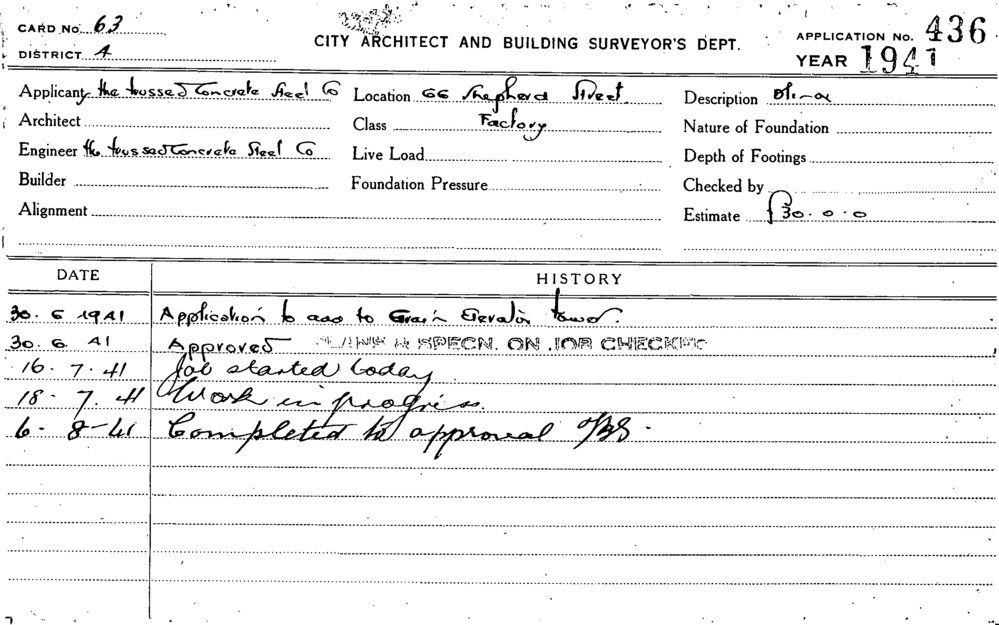 CARD No. 63
DISTRICT 4
CITY ARCHITECT AND BUILDING SURVEYOR'S DEPT.
APPLICATION No. 436
YEAR 1941
Applicant The Trussed Concrete Steel Co Location 66 Shepherd Street Description
Architect Class Factory Nature of Foundation
Engineer The Trussed Concrete Steel Co Live Load Depth of Footings
Builder Foundation Pressure Checked by
Alignment Estimate £30.0.0
DATE HISTORY
30.6 1941 Application to add to Grain Elevator Tower.
30.6.41 Approved PLANS & SPECN. ON JOB CHECKED
16.7.41 Job started today
18.7.41 Work in progress.
6-8-41 Completed to approval